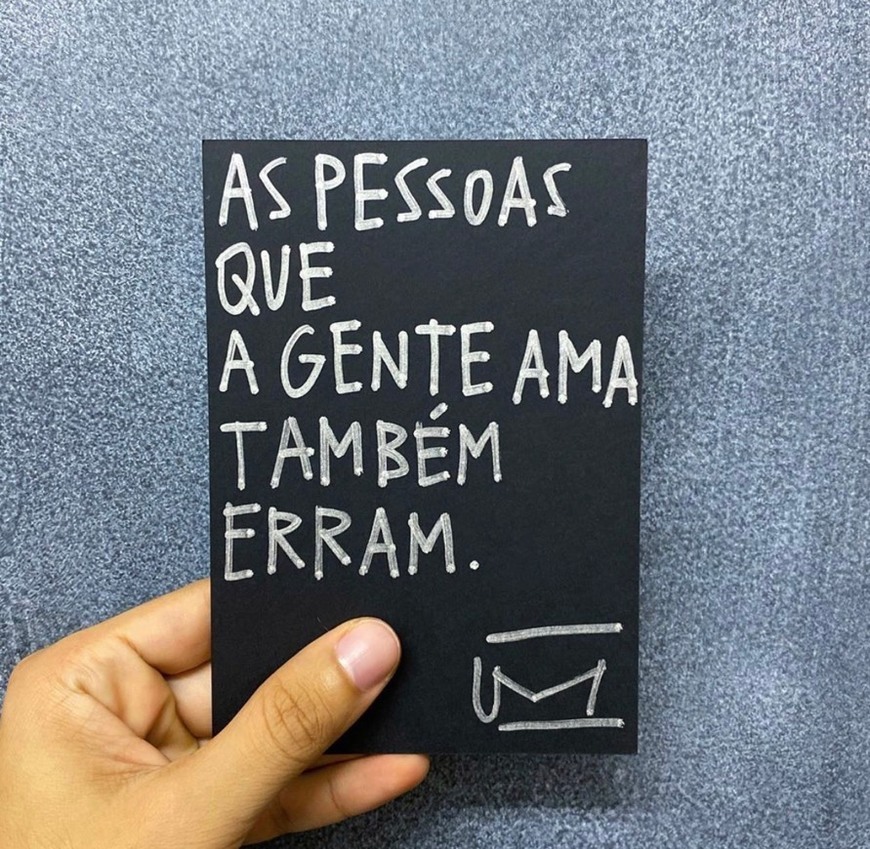 AS PESSOAS
QUE
A GENTE AMA
TAMBÉM
ERRAM.